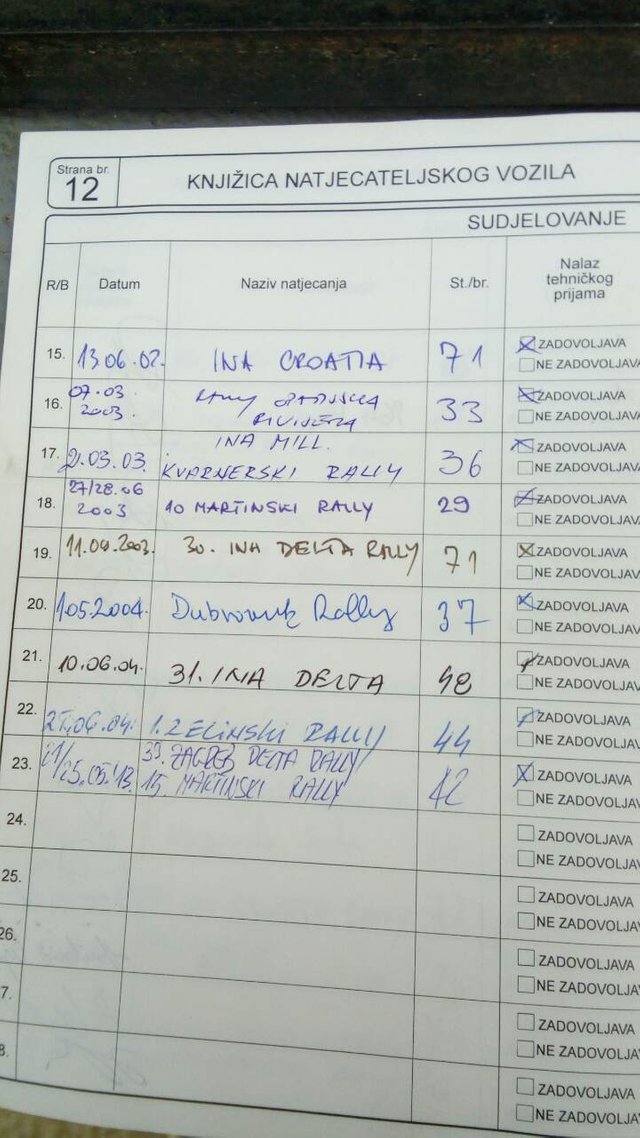 Strana br.
12
KNJIŽICA NATJECATELJSKOG VOZILA
SUDJELOVANJE
R/B Datum Naziv natjecanja St./br. Nalaz tehničkog prijama
15. 13.06.02. INA CROATIA 71 ZADOVOLJAVA
NE ZADOVOLJAVA
16. 07.03. 2003. RALLY OPATIJSKA RIVIJERA 33 ZADOVOLJAVA
NE ZADOVOLJAVA
17. 21.03.03. INA MILL. KVARNERSKI RALLY 36 ZADOVOLJAVA
NE ZADOVOLJAVA
18. 27/28.06 2003 10 MARTINSKI RALLY 29 ZADOVOLJAVA
NE ZADOVOLJAVA
19. 11.09.2003. 30. INA DELTA RALLY 71 ZADOVOLJAVA
NE ZADOVOLJAVA
20. 1.05.2004. Dubrovnik Rally 37 ZADOVOLJAVA
NE ZADOVOLJAVA
21. 10.06.04. 31. INA DELTA 48 ZADOVOLJAVA
NE ZADOVOLJAVA
22. 1. ZELINSKI RALLY 44 ZADOVOLJAVA
NE ZADOVOLJAVA
23. ZAGREB DELTA RALLY ZADOVOLJAVA
15. MARTINSKI RALLY 42 NE ZADOVOLJAVA
24. ZADOVOLJAVA
NE ZADOVOLJAVA
25. ZADOVOLJAVA
NE ZADOVOLJAVA
26. ZADOVOLJAVA
NE ZADOVOLJAVA
7. ZADOVOLJAVA
NE ZADOVOLJAVA
8. ZADOVOLJAVA
NE ZADOVOLJAVA